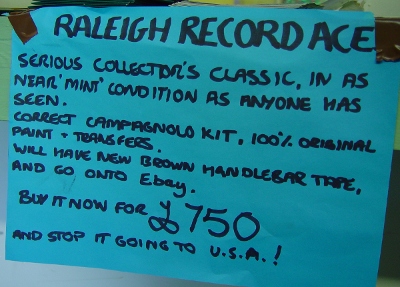 RALEIGH RECORD ACE
SERIOUS COLLECTOR'S CLASSIC, IN AS
NEAR 'MINT' CONDITION AS ANYONE HAS
SEEN.
CORRECT CAMPAGNOLO KIT, 100% ORIGINAL
PAINT + TRANSFERS.
WILL HAVE NEW BROWN HANDLEBAR TAPE,
AND GO ONTO Ebay.
BUY IT NOW FOR £750
AND STOP IT GOING TO U.S.A.!